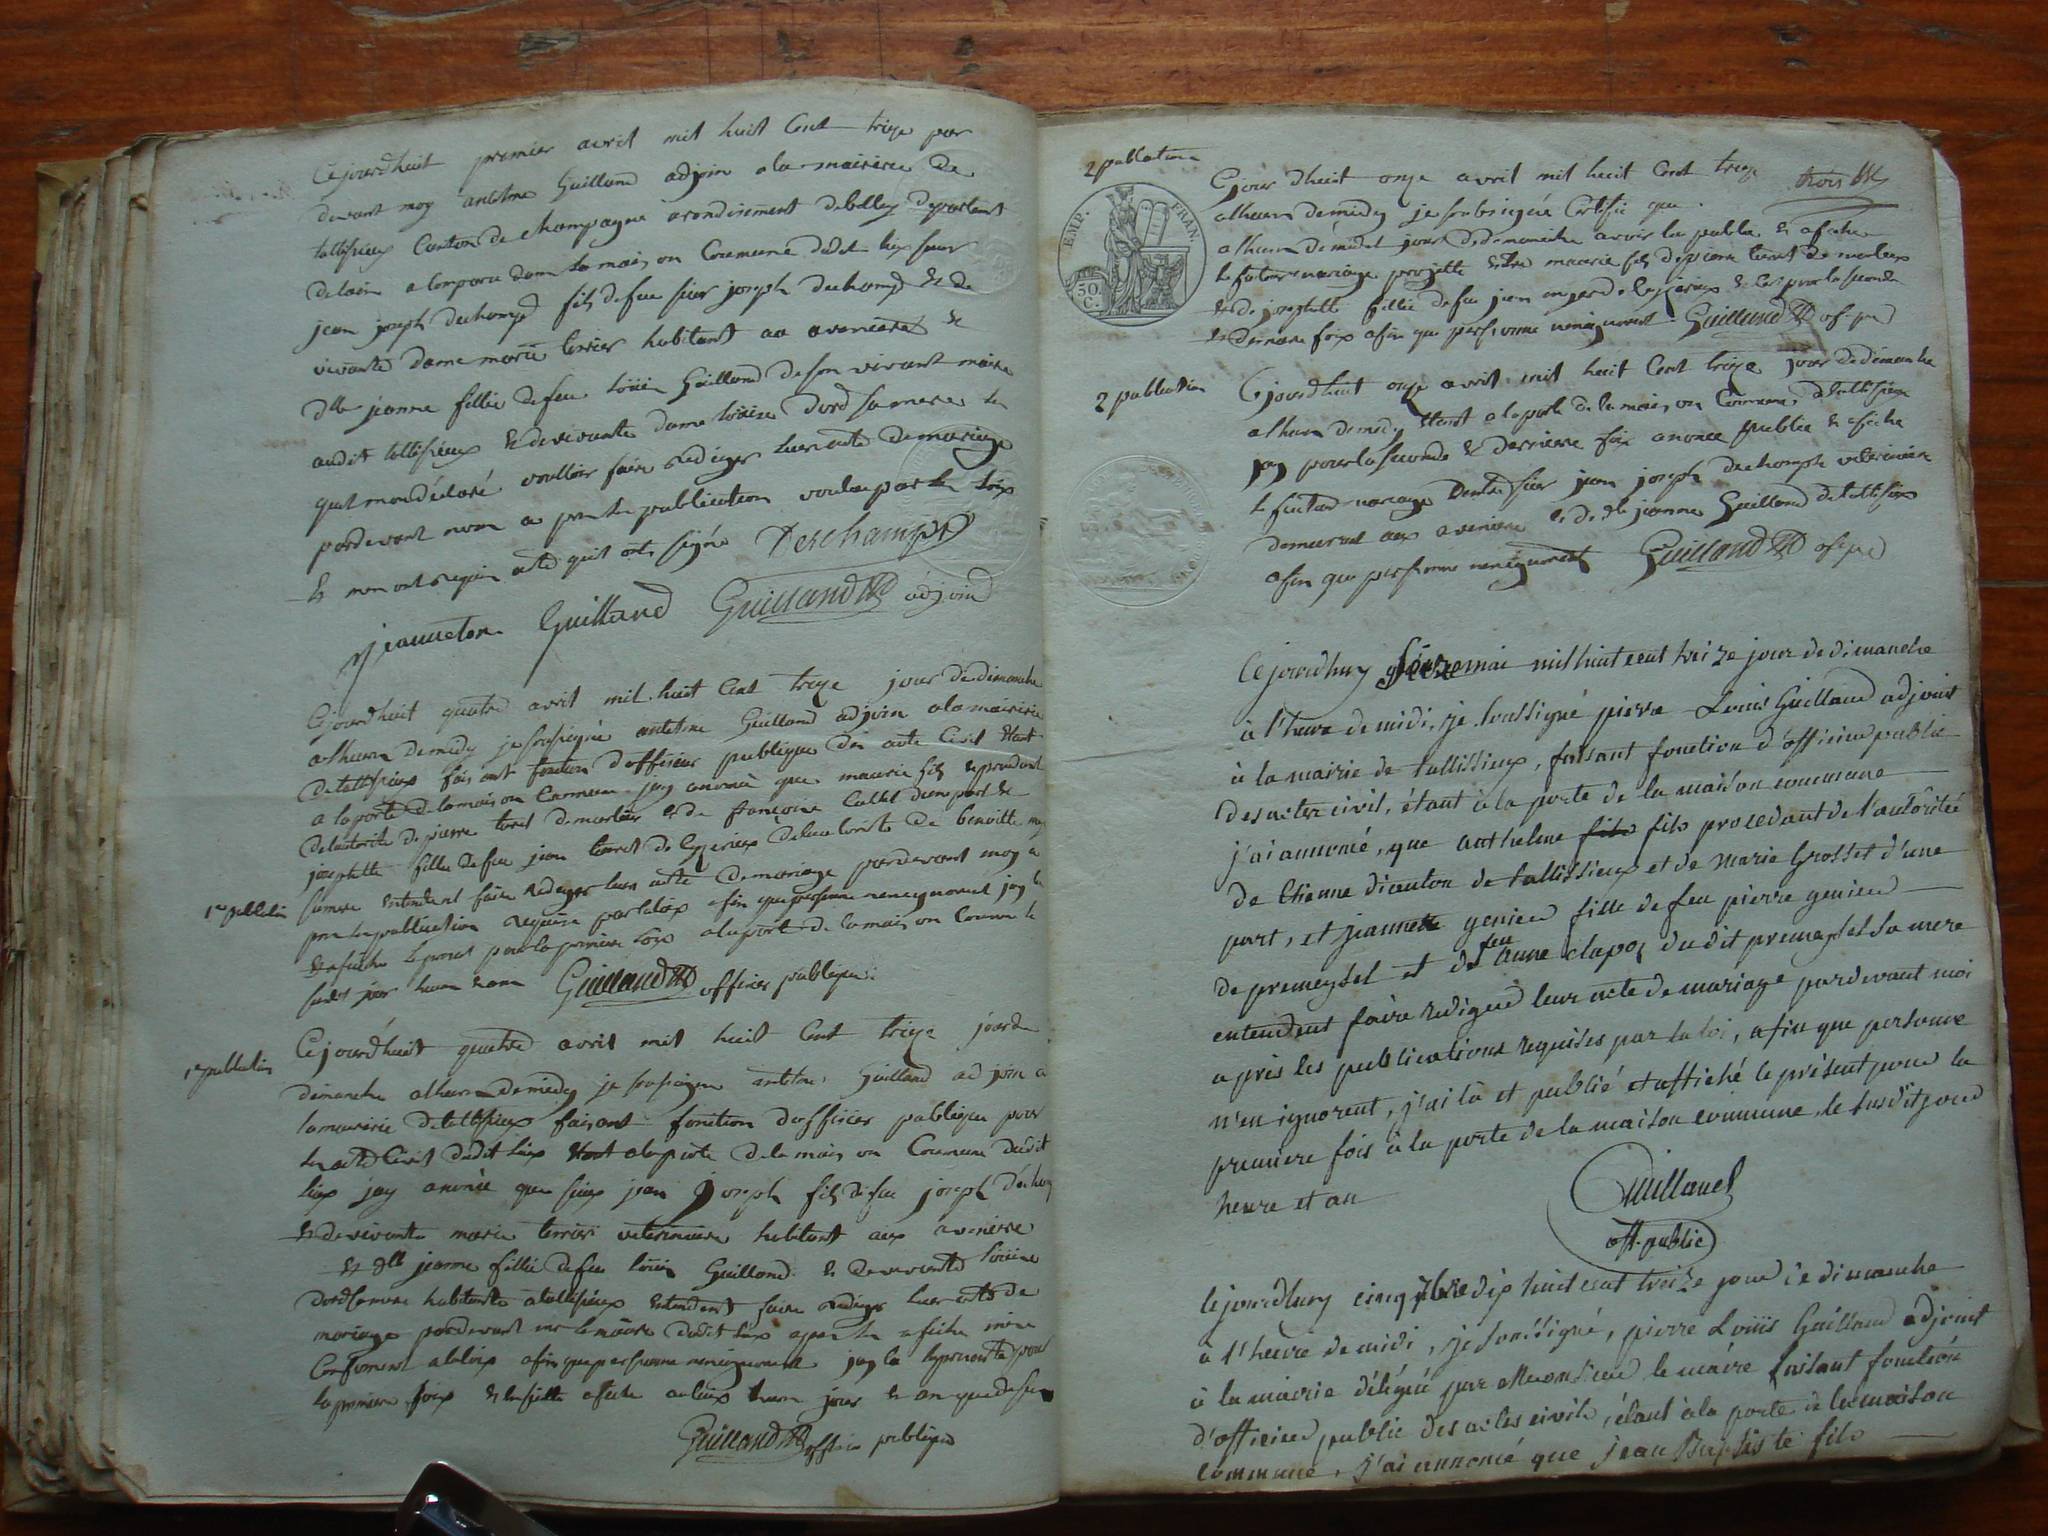 Cejourdhuit premier avril mil huit Cent treize par
devant moy antelme Guilland adjoin a la mairerie de
tallisieux Canton de champagne arondisement debelley departement
delain a Comparu dans la maison Commune dudit lieu sieur
jean joseph dechamp fils defeu sieur joseph dechamp & de
vivante dame marie terrier habitant aux avenieres &
dlle jeanne fillie defeu loüis Guilland deson vivant maire
audit tallisieux & devivante dame loüise dord sa mere
quil mondéclaré voulloir faire rediger leur acte demariage
pardevant nous a pres les publication voulue par les loix
& mon ont requis acte quil ont signé Deschamps
jeanneton Guilland Guilland adjoind
Cejourdhuit quatre avril mil huit Cent treize jour dedimanche
alheure demidy je sousigné antelme Guilland adjoin alamairerie
detallisieux faisant fonction dofficier publique des acte Civil étant
a laporte delamaison Commune jay anoncé que maurie fils
delautorité de pierre de marlieu & de françoise Callet dune part &
josephte fille defeu jean de delautorité de benoitte
sa mere entendent faire rediger leur acte demariage pardevant moy a
1re publication
pres les publication requise par la loix afin que personne nenignorent jay lu
& afiché le present pour la premiere fois a laporte de la maison Commune le
sudit jour heure & an Guilland officier publique
1re publication
Cejourdhuit quatre avril mil huit Cent treize jour de
dimanche alheure demidy je sousigné antelme Guilland adjoin a
lamairerie detallisieux faisant fonction dofficier publique pour
les acte Civil dudit lieu étant alaporte dela maison Commune dudit
lieu jay anoncé que sieur jean joseph fils defeu joseph déchamp
& devivante marie terrier veterinaire habitant aux avenieres
& dlle jeanne fillie defeu loüis Guilland & devivante loüise
dord sa mere habitante atallisieux entendent faire rediger leur acte de
mariage pardevant mr lemaire dudit lieu apres les afiche
Conforment alaloix afinque personne nenignorent jay lu lepresente pour
lapremiere foix & ensuitte afiché au lieux heure jour & an quedesus
Guilland officier publique
2 publication
trois
Cejourdhuit onze avril mil huit Cent treize
alheure demidy je sousigné Certifie que
alheure demidy jour dedimanche avoir lu publié & afiché
le futur mariage projetté entre maurie fils depierre de marlieu
& de josephte fillie defeu jean & ce pour la seconde
& derniere foix afin que personne nenignorent Guilland of. pu
EMP. FRAN.
50 C.
2 publication
Cejourdhuit onze avril mil huit Cent treize jour dedimanche
alheure demidy étant alaporte de la maison Commune detallisieux
jay pour la seconde & derniere foix anoncé publié & afiché
le futur mariage Dentre sieur jean joseph dechamps veterinaire
demeurant aux avenieres & de dlle jeanne Guilland detallisieux
afin que personne nenignorent Guilland of. pu
Cejourdhuy seize mai mil huit cent treize jour de dimanche
à l'heure de midi, je soussigné pierre Louis Guilland adjoint
à la mairie de tallissieux, faisant fonction d'officier public
des actes civil, étant à la porte de la maison commune
j'ai annoncé, que anthelme fils fils procedant de l'autôritée
de Etienne dicenton de tallissieux et de Marie Grosset d'une
part, et jeannette genier fille de feu pierre genier
de premeysel et de feu anne clapoz dudit premeysel sa mere
entendent faire rediger leur acte de mariage pardevant moi
apris les publications requises par la loi, afin que personne
n'en ignorent, j'ai lû et publié et affiché le présent pour la
premiere fois à la porte de la maison commune, le susdit jour
heure et an
Guilland
off. public
Cejourdhuy cinq 7bre dix huit cent treize jour de dimanche
à l'heure de midi, je soussigné, pierre Loüis Guilland adjoint
à la mairie délégué par Monsieur le maire faisant fonction
d'officier public des actes civils, étant à la porte de la maison
commune, j'ai annoncé que jean Baptiste fils